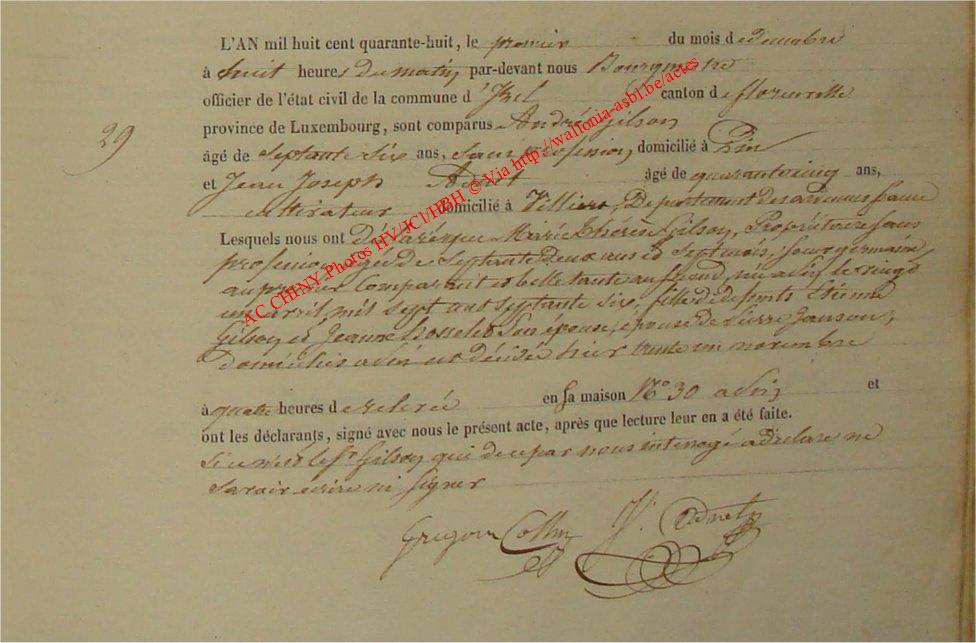 L'AN mil huit cent quarante-huit, le premier du mois de decembre
à huit heures du matin par-devant nous Bourgmestre
officier de l'état civil de la commune d'Izel canton de florenville
29
province de Luxembourg, sont comparus André Gilson
âgé de septante six ans, sans profession, domicilié à Pin
et Jean Joseph Adnet âgé de quarante cinq ans,
cultivateur domicilié à Villiers, Département des ardennes france
Lesquels nous ont déclaré que Marie Therese Gilson, Propriétaire sans
profession, agée de septante deux ans et sept mois, soeur germaine
au premier comparant et belle tante au second, née a Pin le vingt
un avril mil sept cent septante six, fille de defunts Etienne
Gilson et Jeanne son épouse, épouse de Pierre Janson,
domiciliés a Pin est décédée hier trente novembre
à quatre heures de relevée en sa maison N° 30 a Pin et
ont les déclarants, signé avec nous le présent acte, après que lecture leur en a été faite.
si ce n'est le Sr Gilson qui de ce par nous interrogé a déclaré ne
savoir ecrire ni signer
Gregoire Collin J. J. Adnet
AC CHINY Photos HV/JCI/HBH © Via http://wallonia-asbl.be/actes